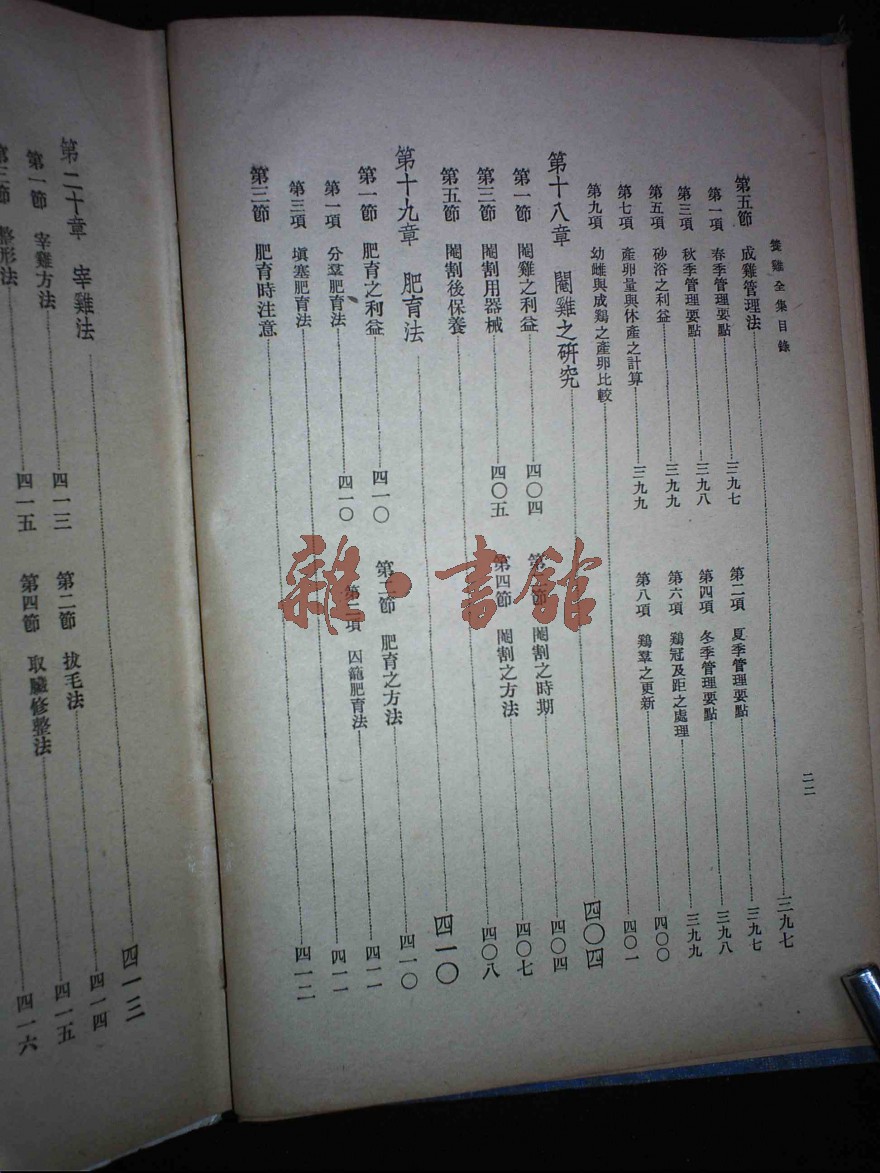 養雞全集目錄 二二
第五節 成雞管理法 三九七
第一項 春季管理要點 三九七 第二項 夏季管理要點 三九七
第三項 秋季管理要點 三九八 第四項 冬季管理要點 三九八
第五項 砂浴之利益 三九九 第六項 鶏冠及距之處理 三九九
第七項 產卵量與休產之計算 三九九 第八項 鶏羣之更新 四〇〇
第九項 幼雌與成鶏之產卵比較 四〇一
第十八章 閹雞之研究 四〇四
第一節 閹雞之利益 四〇四 第二節 閹割之時期 四〇四
第三節 閹割用器械 四〇五 第四節 閹割之方法 四〇七
第五節 閹割後保養 四〇八
第十九章 肥育法 四一〇
第一節 肥育之利益 四一〇 第二節 肥育之方法 四一〇
第一項 分羣肥育法 四一〇 第二項 囚籠肥育法 四一一
第三項 塡塞肥育法 四一一
第三節 肥育時注意 四一二
第二十章 宰雞法 四一三
第一節 宰雞方法 四一三 第二節 拔毛法 四一四
第三節 整形法 四一五 第四節 取臟修整法 四一五
四一六
雜·書館